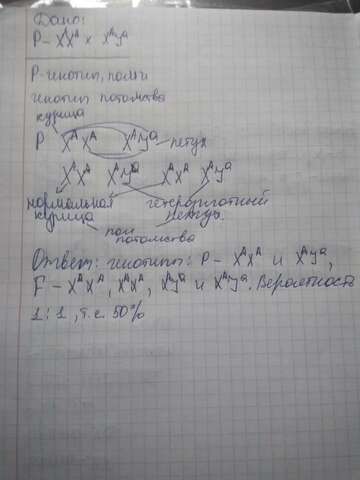 Дано:
P - XᴬXᴬ x XᴬYᵃ
P-генотип, полы
генотип потомства
курица
P XᴬXᴬ XᴬYᵃ петух
XᴬXᴬ XᴬYᵃ XᴬXᴬ XᴬYᵃ
нормальная гетерозиготный
курица петух
пол
потомства
Ответ: генотипы: P - XᴬXᴬ и XᴬYᵃ,
F - XᴬXᴬ, XᴬXᴬ, XᴬYᵃ и XᴬYᵃ. Вероятность
1:1, т.е. 50%